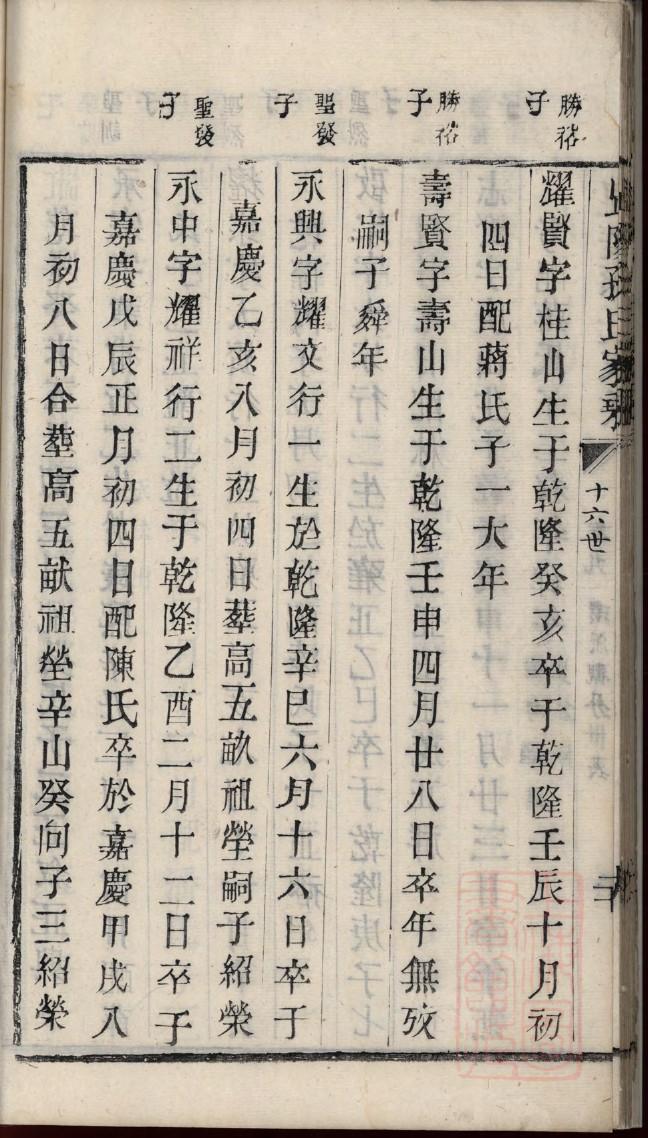 氏家乘
十六世
勝裕
子
耀賢字桂山生于乾隆癸亥卒于乾隆壬辰十月初
四日配蔣氏子一大年
勝裕
子
壽賢字壽山生于乾隆壬申四月廿八日卒年無攷
嗣子舜年
聖發
子
永興字耀文行一生於乾隆辛巳六月十六日卒于
嘉慶乙亥八月初四日塟高五畝祖塋嗣子紹榮
聖發
子
永中字耀祥行二生于乾隆乙酉二月十二日卒于
嘉慶戊辰正月初四日配陳氏卒於嘉慶甲戌八
月初八日合塟高五畝祖塋辛山癸向子三紹榮